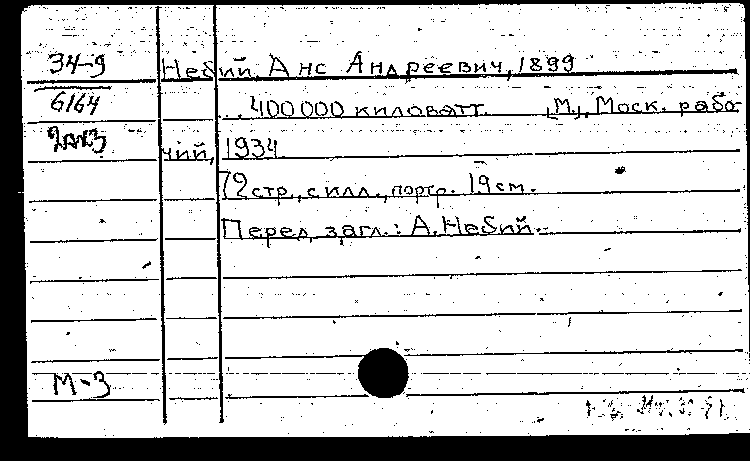 34-9 Небий, Анс Андреевич, 1899
6164 ..400000 киловатт. [М.], Моск. рабо-
чий, 1934.
72 стр., с илл., портр. 19 см.
Перед загл.: А. Небий.
М-3